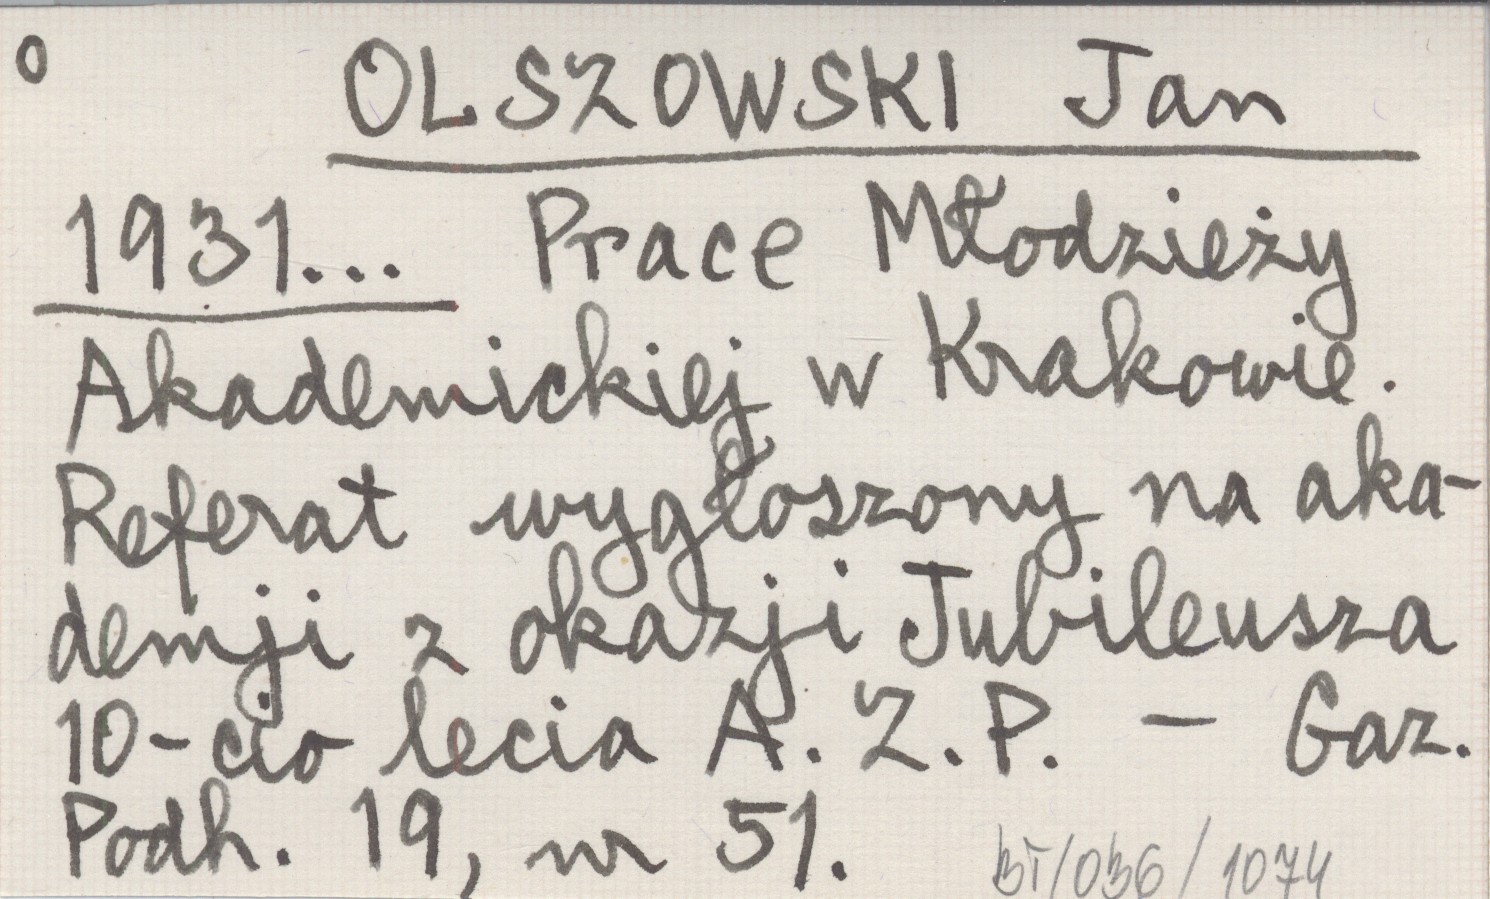 O OLSZOWSKI Jan
1931... Prace Młodzieży
Akademickiej w Krakowie.
Referat wygłoszony na aka-
demji z okazji Jubileusza
10-cio lecia A. Z. P. - Gaz.
Podh. 19, nr 51.
BT/036/1074